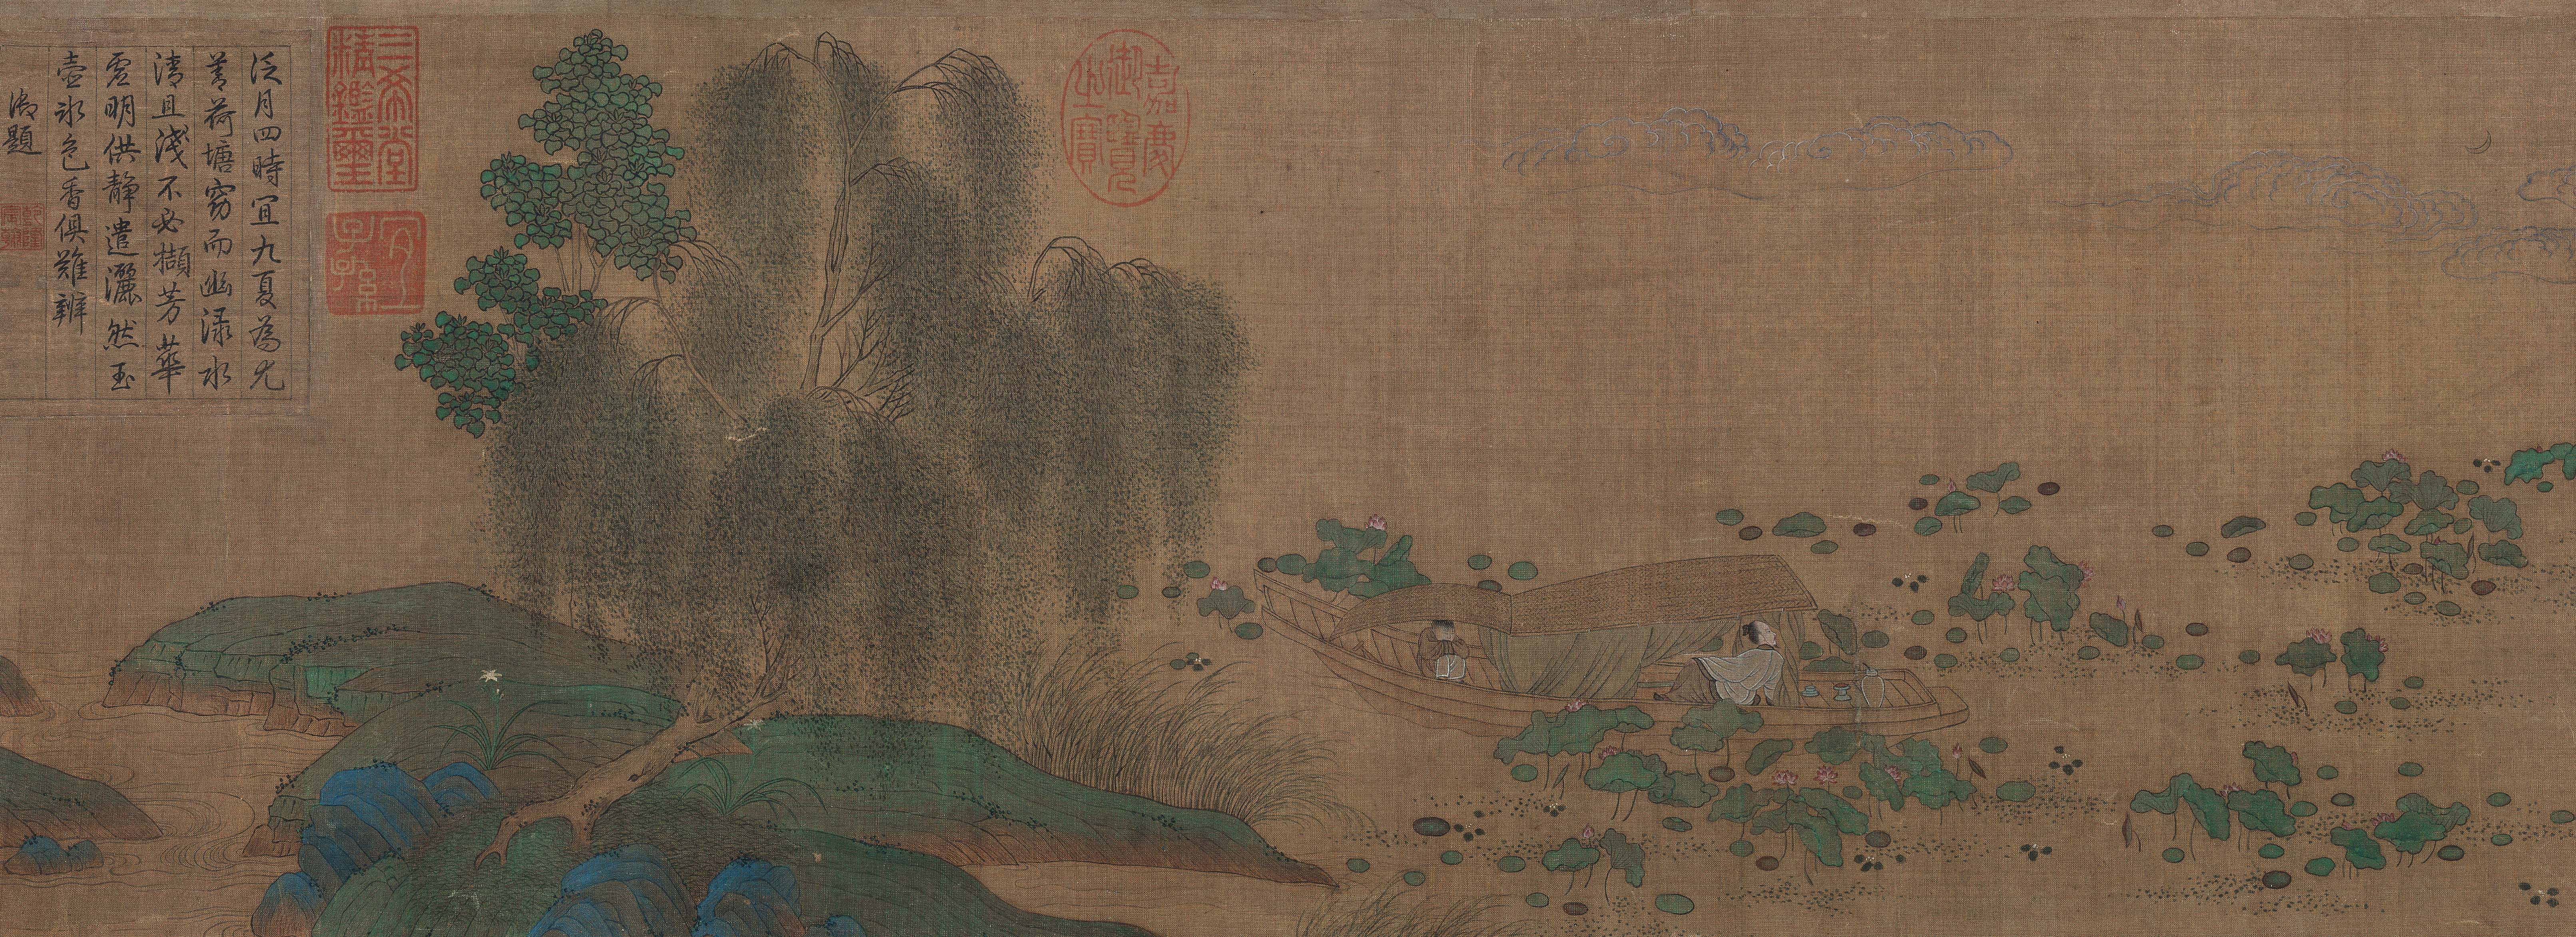 泛月四時宜九夏為尤
著荷塘窈而幽淥水
清且淺不必擷芳華
虛明供靜遣灑然玉
壺冰色香俱難辨
御題
乾隆宸翰
三希堂
精鑑璽
宜子孫
嘉慶御覽之寶